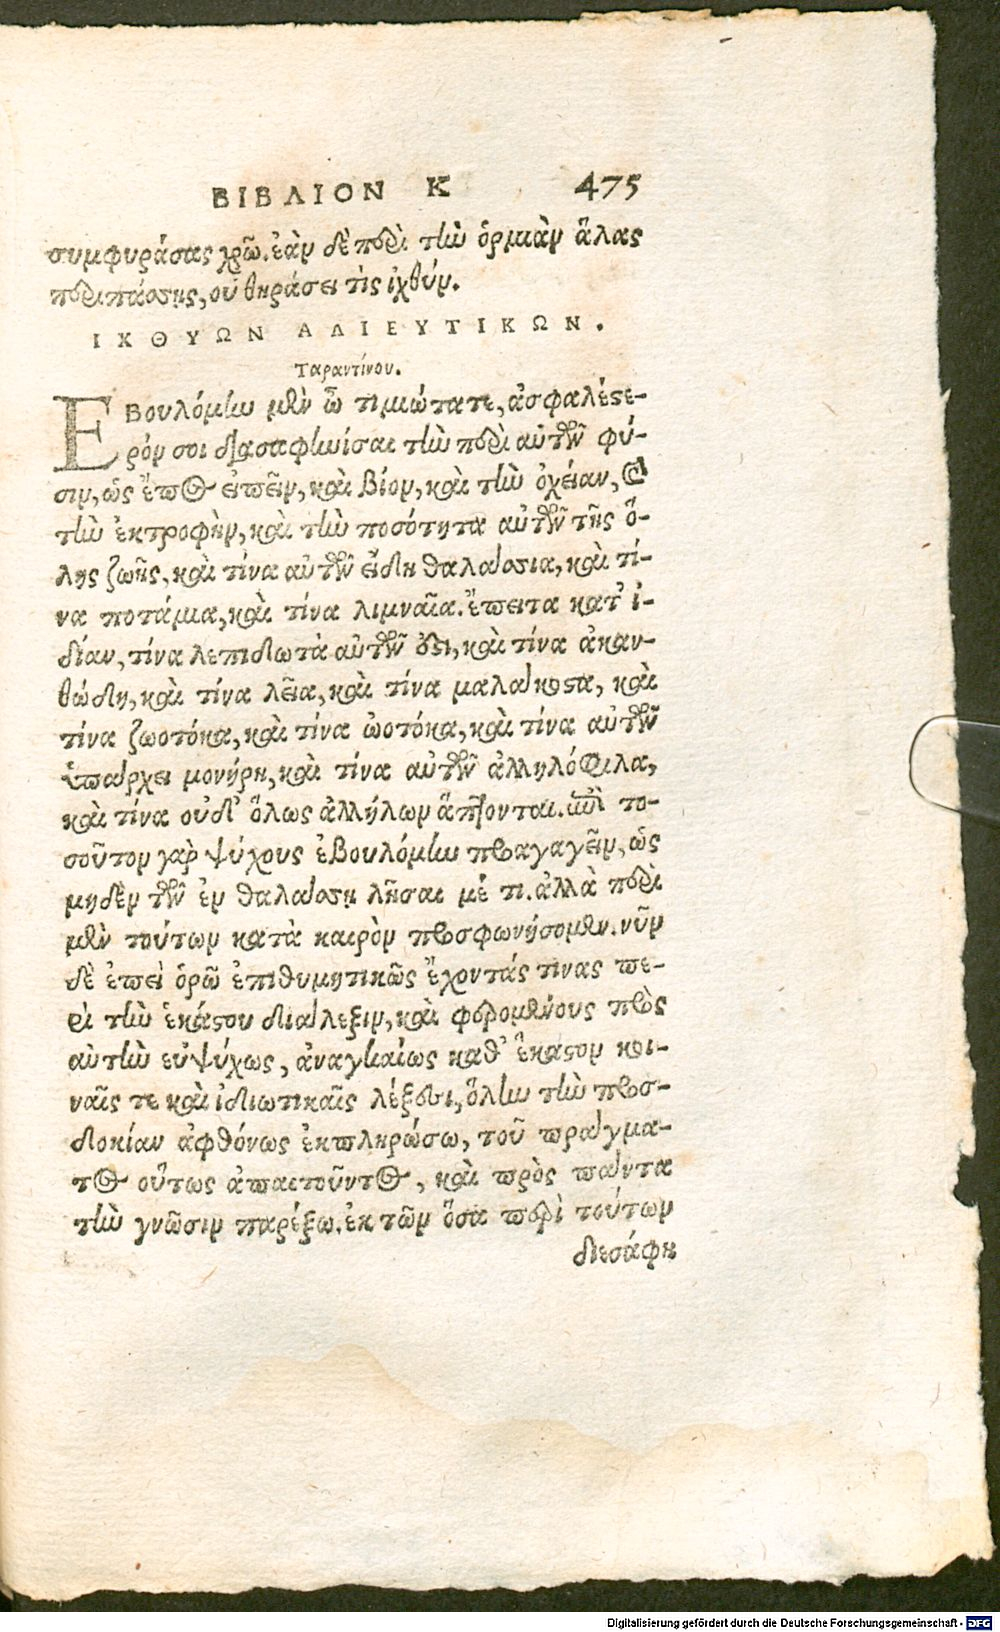 ΒΙΒΛΙΟΝ Κ 475
συμφυράσας χρῶ. ἐὰν δὲ περὶ τὴν ὁρμιὰν ἅλας
περιπάσῃς, οὐ θηράσει τὶς ἰχθύν.
ΙΧΘΥΩΝ ΑΛΙΕΥΤΙΚΩΝ.
Ταραντίνου.
ΕΒουλόμην μὲν ὦ τιμιώτατε, ἀσφαλέστε-
ρόν σοι διασαφηνίσαι τὴν περὶ αὐτῶν φύ-
σιν, ὡς ἔπος εἰπεῖν, καὶ βίον, καὶ τὴν ὀχείαν, καὶ
τὴν ἐκτροφὴν, καὶ τὴν ποσότητα αὐτῶν τῆς ὅ-
λης ζωῆς, καὶ τίνα αὐτῶν εἴδη θαλάσσια, καὶ τί-
να ποτάμια, καὶ τίνα λιμναῖα. ἔπειτα κατ' ἰ-
δίαν, τίνα λεπιδωτὰ αὐτῶν ὅτι, καὶ τίνα ἀκαν-
θώδη, καὶ τίνα λεῖα, καὶ τίνα μαλάκοστα, καὶ
τίνα ζωοτόκα, καὶ τίνα ὠοτόκα, καὶ τίνα αὐτῶν
ὑπάρχει μονήρη, καὶ τίνα αὐτῶν ἀλληλόφιλα,
καὶ τίνα οὐδ' ὅλως ἀλλήλων ἅπτονται. ἐπὶ το-
σοῦτον γὰρ ψύχους ἐβουλόμην προαγαγεῖν, ὡς
μηδὲν τῶν ἐν θαλάσσῃ λῆσαι μέ τι. ἀλλὰ περὶ
μὲν τούτων κατὰ καιρὸν προσφωνήσομεν. νῦν
δὲ ἐπεὶ ὁρῶ ἐπιθυμητικῶς ἔχοντάς τινας πε-
ρὶ τὴν ἑκάστου διάλεξιν, καὶ φερομένους πρὸς
αὐτὴν εὐψύχως, ἀναγκαίως καθ' ἕκαστον κοι-
ναῖς τε καὶ ἰδιωτικαῖς λέξεσι, ὅλην τὴν προσ-
δοκίαν ἀφθόνως ἐκπληρώσω, τοῦ πράγμα-
τος οὕτως ἀπαιτοῦντος, καὶ πρὸς πάντα
τὴν γνῶσιν παρέξω. ἐκ τῶν ὅσα περὶ τούτων
διεσάφη
Digitalisierung gefördert durch die Deutsche Forschungsgemeinschaft - DFG